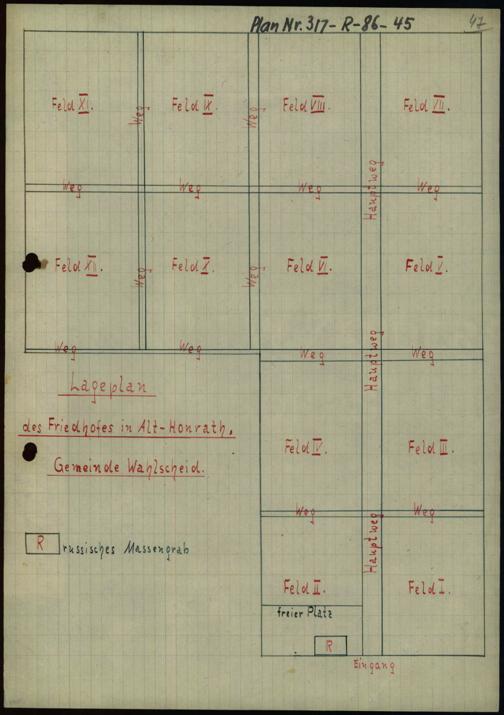 Plan Nr. 317-R-86-45
47
Feld XI.
Weg
Feld IX.
Weg
Feld VIII.
Hauptweg
Feld VII.
Weg
Weg
Weg
Weg
Feld XII.
Weg
Feld X.
Weg
Feld VI.
Hauptweg
Feld V.
Weg
Weg
Weg
Weg
Lageplan
des Friedhofes in Alt-Honrath.
Gemeinde Wahlscheid.
R russisches Massengrab
Feld IV.
Feld III.
Weg
Hauptweg
Weg
Feld II.
Feld I.
freier Platz
R
Eingang